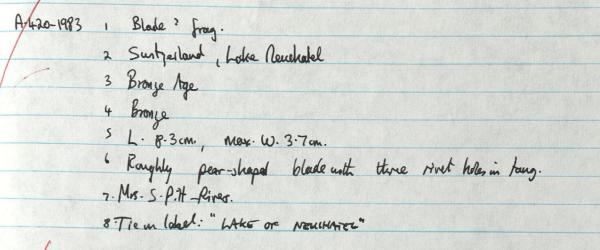 A.420-1983 1 Blade? frag.
2 Switzerland, Lake Neuchatel
3 Bronze Age
4 Bronze
5 L. 8.3cm., max. W. 3.7cm.
6 Roughly pear-shaped blade with three rivet holes in tang.
7. Mrs. S. P.H-Rivers.
8. Tie on label: "LAKE OF NEUCHATEL"